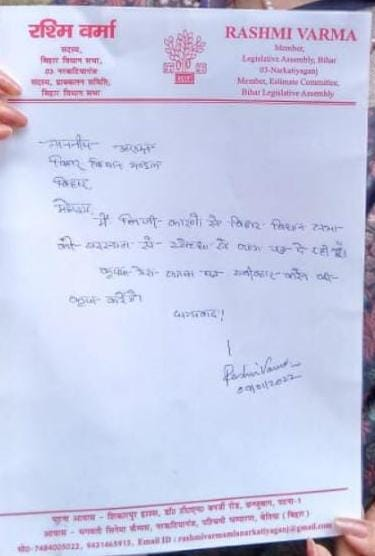 रश्मि वर्मा
सदस्य,
बिहार विधान सभा,
03 नरकटियागंज
सदस्य, प्राक्कलन समिति,
बिहार विधान सभा
RASHMI VARMA
Member,
Legislative Assembly, Bihar
03-Narkatiyaganj
Member, Estimate Committee,
Bihar Legislative Assembly
माननीय अध्यक्ष
बिहार विधान मण्डल
बिहार,
महोदय,
मैं निजी कारणों से बिहार विधान सभा
की सदस्यता से इस्तीफा त्याग पत्र दे रही हूँ।
कृपया मेरा त्याग पत्र स्वीकार करने की
कृपा करेंगे।
धन्यवाद!
Rashmi Varma
09/01/2022
पटना आवास - शिकारपुर हाउस, डॉ० टी०एन० बनर्जी रोड, छज्जुबाग, पटना-1
आवास - भगवती सिनेमा कैम्पस, नरकटियागंज, पश्चिमी चम्पारण, बेतिया (बिहार)
मो०-7484005022, 9431465913, Email ID : rashmivarmamlanarkatiyaganj@gmail.com